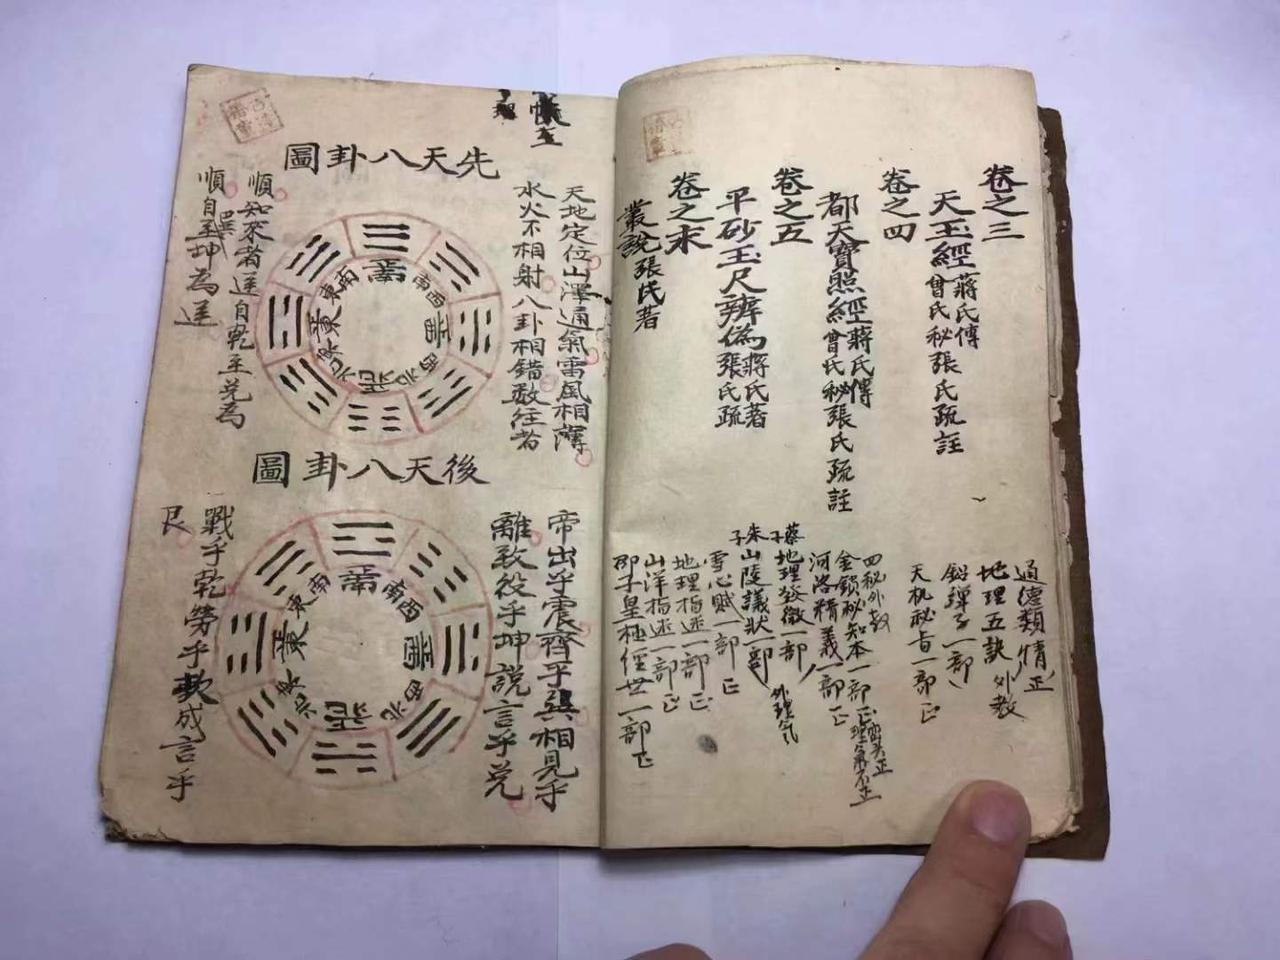 卷之三
天玉經 蔣氏傳 曾氏秘 張氏疏註
卷之四
都天寶照經 蔣氏傳 曾氏秘 張氏疏註
卷之五
平砂玉尺辨偽 蔣氏著 張氏疏
卷之末
叢說 張氏著
通德類情正
地理五訣外教
鉛彈子一部
天机秘旨一部正
四秘外教
金鎖秘知本一部正 巒头正 理氣不正
河洛精義一部正
蔡子地理發微一部
朱子山陵議狀一部 外理气
雪心賦一部正
地理指迷一部正
山洋指迷一部正
邵子皇極經世一部正
先天八卦圖
天地定位山澤通氣雷風相薄
水火不相射八卦相錯數往者
順知來者逆自乾至兑為
順自巽至坤為逆
南
西南
西北
北
東北
東
東南
後天八卦圖
帝出乎震齊乎巽相見乎
離致役乎坤說言乎兑
戰乎乾勞乎坎成言乎
艮
南
西南
西
西北
北
東北
東
東南